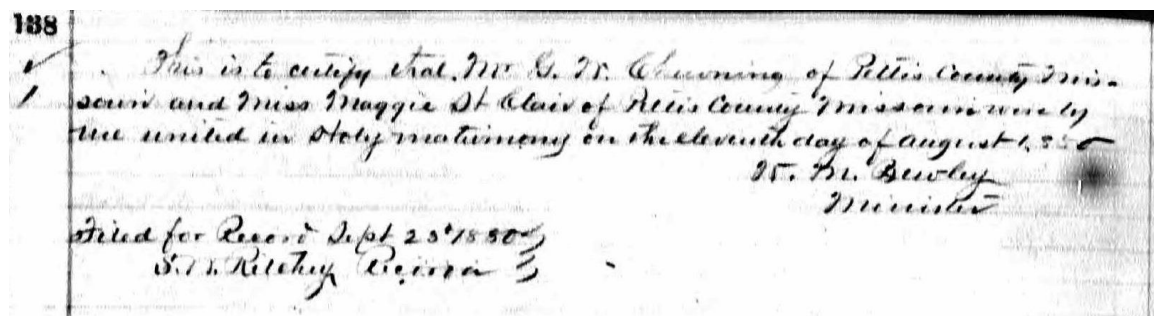 138
This is to certify that Mr G. W. Chewning of Pettis County Mis-
souri and Miss Maggie St Clair of Pettis County Missouri were by
me united in Holy matrimony on the eleventh day of August 1,880
W. M. Bewley
Minister
Filed for Record Sept 23 1880
Ritchey Recorder